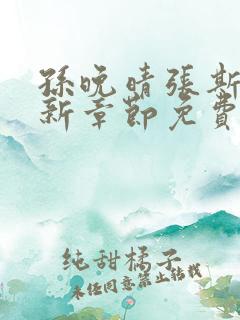 孫晚晴張斯
新章節免費
純甜橘子
未经同意禁止转载